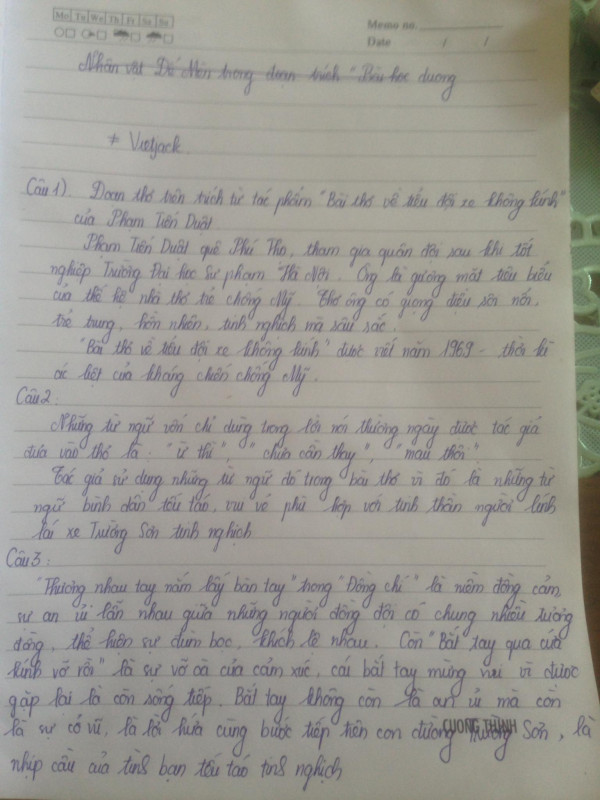 Mo Tu We Th Fr Sa Su
Memo no.
Date / /
Nhân vật Dế Mèn trong đoạn trích "Bài học đường
+ Vietjack
Câu 1). Đoạn thơ trên trích từ tác phẩm "Bài thơ về tiểu đội xe không kính"
của Phạm Tiến Duật
Phạm Tiến Duật quê Phú Thọ, tham gia quân đội sau khi tốt
nghiệp Trường Đại học Sư phạm Hà Nội. Ông là gương mặt tiêu biểu
của thế hệ nhà thơ trẻ chống Mỹ. Thơ ông có giọng điệu sôi nổi,
trẻ trung, hồn nhiên, tinh nghịch mà sâu sắc.
"Bài thơ về tiểu đội xe không kính" được viết năm 1969 - thời kì
ác liệt của kháng chiến chống Mỹ.
Câu 2:
Những từ ngữ vốn chỉ dùng trong lời nói thường ngày được tác giả
đưa vào thơ là: "ừ thì", "chưa cần thay", "mau thôi".
Tác giả sử dụng những từ ngữ đó trong bài thơ vì đó là những từ
ngữ bình dân tếu táo, vui vẻ phù hợp với tinh thần người lính
lái xe Trường Sơn tinh nghịch
Câu 3:
"Thương nhau tay nắm lấy bàn tay" trong "Đồng chí" là niềm đồng cảm,
sự an ủi lẫn nhau giữa những người đồng đội có chung nhiều tương
đồng, thể hiện sự đùm bọc, khích lệ nhau. Còn "Bắt tay qua cửa
kính vỡ rồi" là sự vỡ oà của cảm xúc, cái bắt tay mừng vui vì được
gặp lại là còn sống tiếp. Bắt tay không còn là an ủi mà còn
là sự cổ vũ, là lời hứa cùng bước tiếp trên con đường Trường Sơn, là
nhịp cầu của tình bạn tếu táo tinh nghịch
CUONG THINH